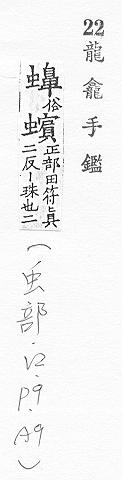 22龍龕手鑑
俗蠙正部田符眞二反一珠也二
(虫部.12.P9.A9)